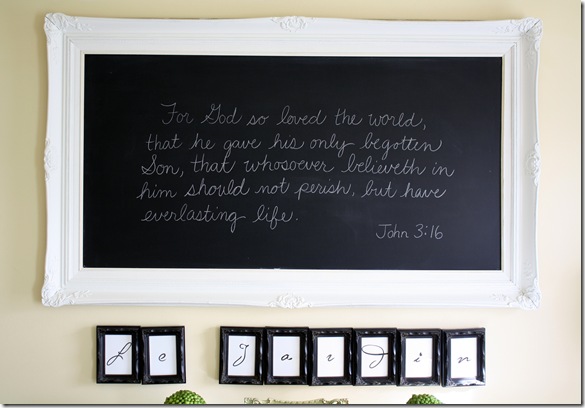 For God so loved the world,
that he gave his only begotten
Son, that whosoever believeth in
him should not perish, but have
everlasting life.
John 3:16
Le Jardin